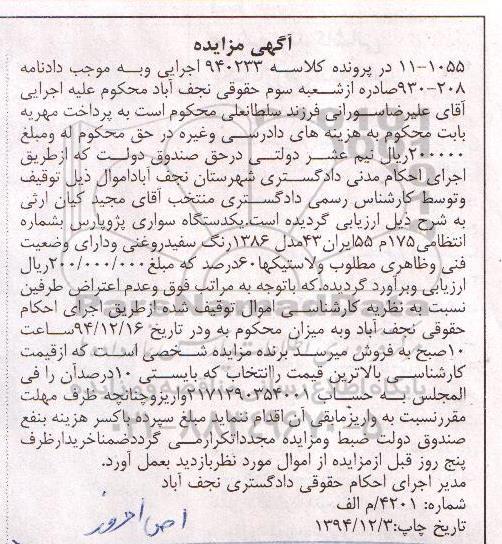 آگهی مزایده
۱۱-۱۰۵۵ در پرونده کلاسه ۹۴۰۲۳۳ اجرایی وبه موجب دادنامه
۹۳۰-۲۰۸صادره ازشعبه سوم حقوقی نجف آباد محکوم علیه اجرایی
آقای علیرضاسورانی فرزند سلطانعلی محکوم است به پرداخت مهریه
بابت محکوم به هزینه های دادرسی وغیره در حق محکوم له ومبلغ
۲۰۰۰۰۰ریال نیم عشر دولتی درحق صندوق دولت که ازطریق
اجرای احکام مدنی دادگستری شهرستان نجف آباداموال ذیل توقیف
وتوسط کارشناس رسمی دادگستری منتخب آقای مجید کیان ارثی
به شرح ذیل ارزیابی گردیده است.یکدستگاه سواری پژوپارس بشماره
انتظامی۱۷۵م ۵۵ایران۴۳مدل ۱۳۸۶رنگ سفیدروغنی ودارای وضعیت
فنی وظاهری مطلوب ولاستیکها۶۰درصد که مبلغ۲۰۰/۰۰۰/۰۰۰ریال
ارزیابی وبرآورد گردیده.که باتوجه به مراتب فوق وعدم اعتراض طرفین
نسبت به نظریه کارشناسی اموال توقیف شده ازطریق اجرای احکام
حقوقی نجف آباد وبه میزان محکوم به ودر تاریخ ۹۴/۱۲/۱۶ساعت
۱۰صبح به فروش میرسد برنده مزایده شخصی است که ازقیمت
کارشناسی بالاترین قیمت راانتخاب که بایستی ۱۰درصدآن را فی
المجلس به حساب ۲۱۷۱۲۹۰۲۵۴۰۰۰واریزوچنانچه ظرف مهلت
مقررنسبت به واریزمابقی آن اقدام ننماید مبلغ سپرده باکسر هزینه بنفع
صندوق دولت ضبط ومزایده مجدداتکرارمی گرددضمناخریدارظرف
پنج روز قبل ازمزایده از اموال مورد نظربازدید بعمل آورد.
مدیر اجرای احکام حقوقی دادگستری نجف آباد
شماره: ۴۲۰۱/م الف
تاریخ چاپ:۱۳۹۴/۱۲/۳